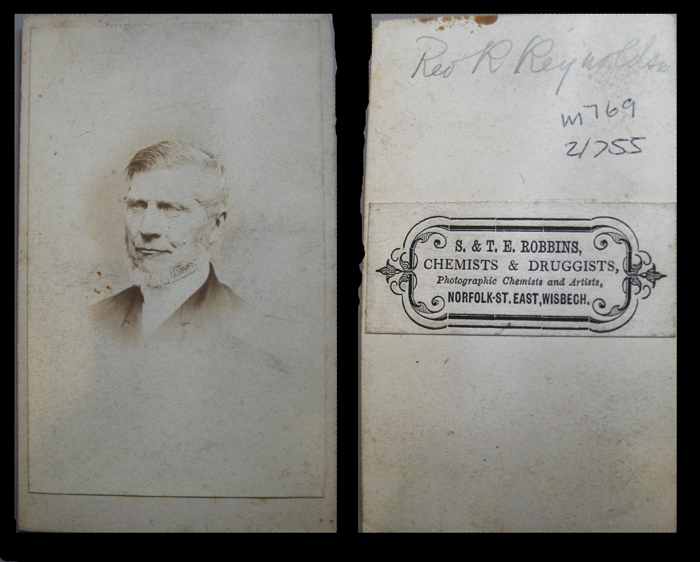 Rev R Reynolds
m769
21755
S. & T. E. ROBBINS,
CHEMISTS & DRUGGISTS,
Photographic Chemists and Artists,
NORFOLK-ST. EAST, WISBECH.